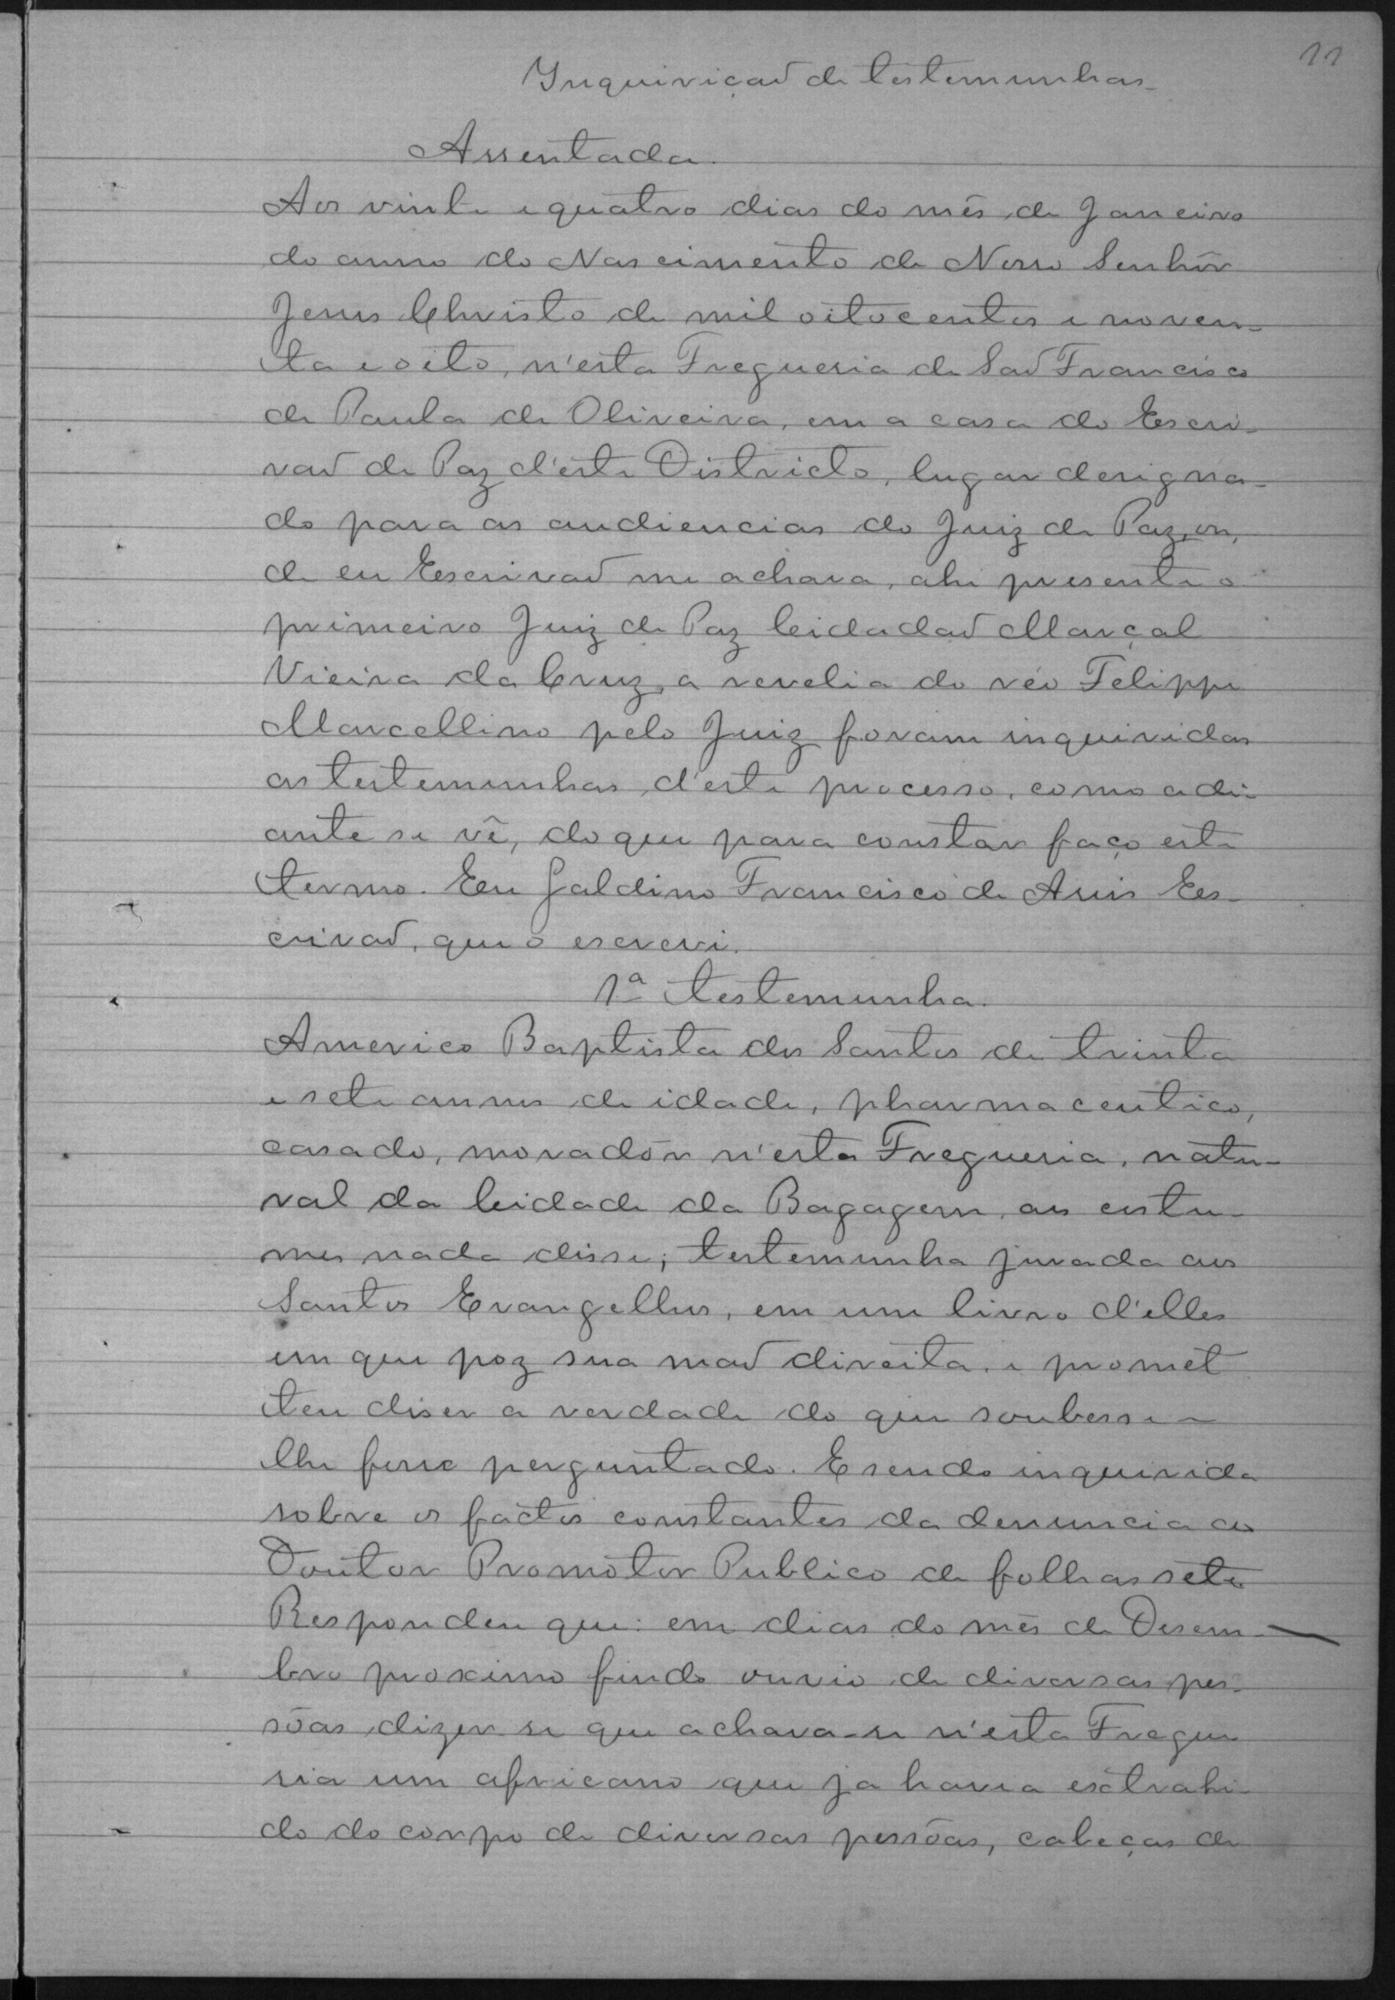 11
Inquirição de testemunhas.
Assentada.
Aos vinte e quatro dias do mês de Janeiro
do anno do Nascimento de Nosso Senhôr
Jesus Christo de mil oitocentos e noven-
ta e oito, n'esta Freguesia de São Francisco
de Paula de Oliveira, em a casa do Escri-
vão de Paz d'este Districto, lugar designa-
do para as audiencias do Juiz de Paz, on,
de eu Escrivão me achava, ahi presente o
primeiro Juiz de Paz Cidadão Marçal
Vieira da Cruz, a revelia do réo Felippe
Marcellino pelo Juiz foram inquiridas
as testemunhas d'este processo, como adi-
ante se vê, do que para constar faço este
termo. Eu Galdino Francisco de Assis Es-
crivão, que o escrevi.
1ª testemunha.
Americo Baptista dos Santos de trinta
e sete annos de idade, pharmaceutico,
casado, moradôr n'esta Freguesia, natu-
ral da Cidade da Bagagem, aos custu-
mes nada disse; testemunha jurada aos
Santos Evangelhos, em um livro d'elles
em que poz sua mão direita, e promet
teu diser a verdade do que soubesse e
lhe fosse perguntado. E sendo inquirida
sobre os factos constantes da denuncia do
Doutor Promotor Publico de folhas sete
Respondeu que: em dias do mês de Desem-
bro proximo findo ouvio de diversas pes-
sôas dizer-se que achava-se n'esta Fregue
sia um africano que ja havia extrahi-
do do corpo de diversas pessôas, cabeças de